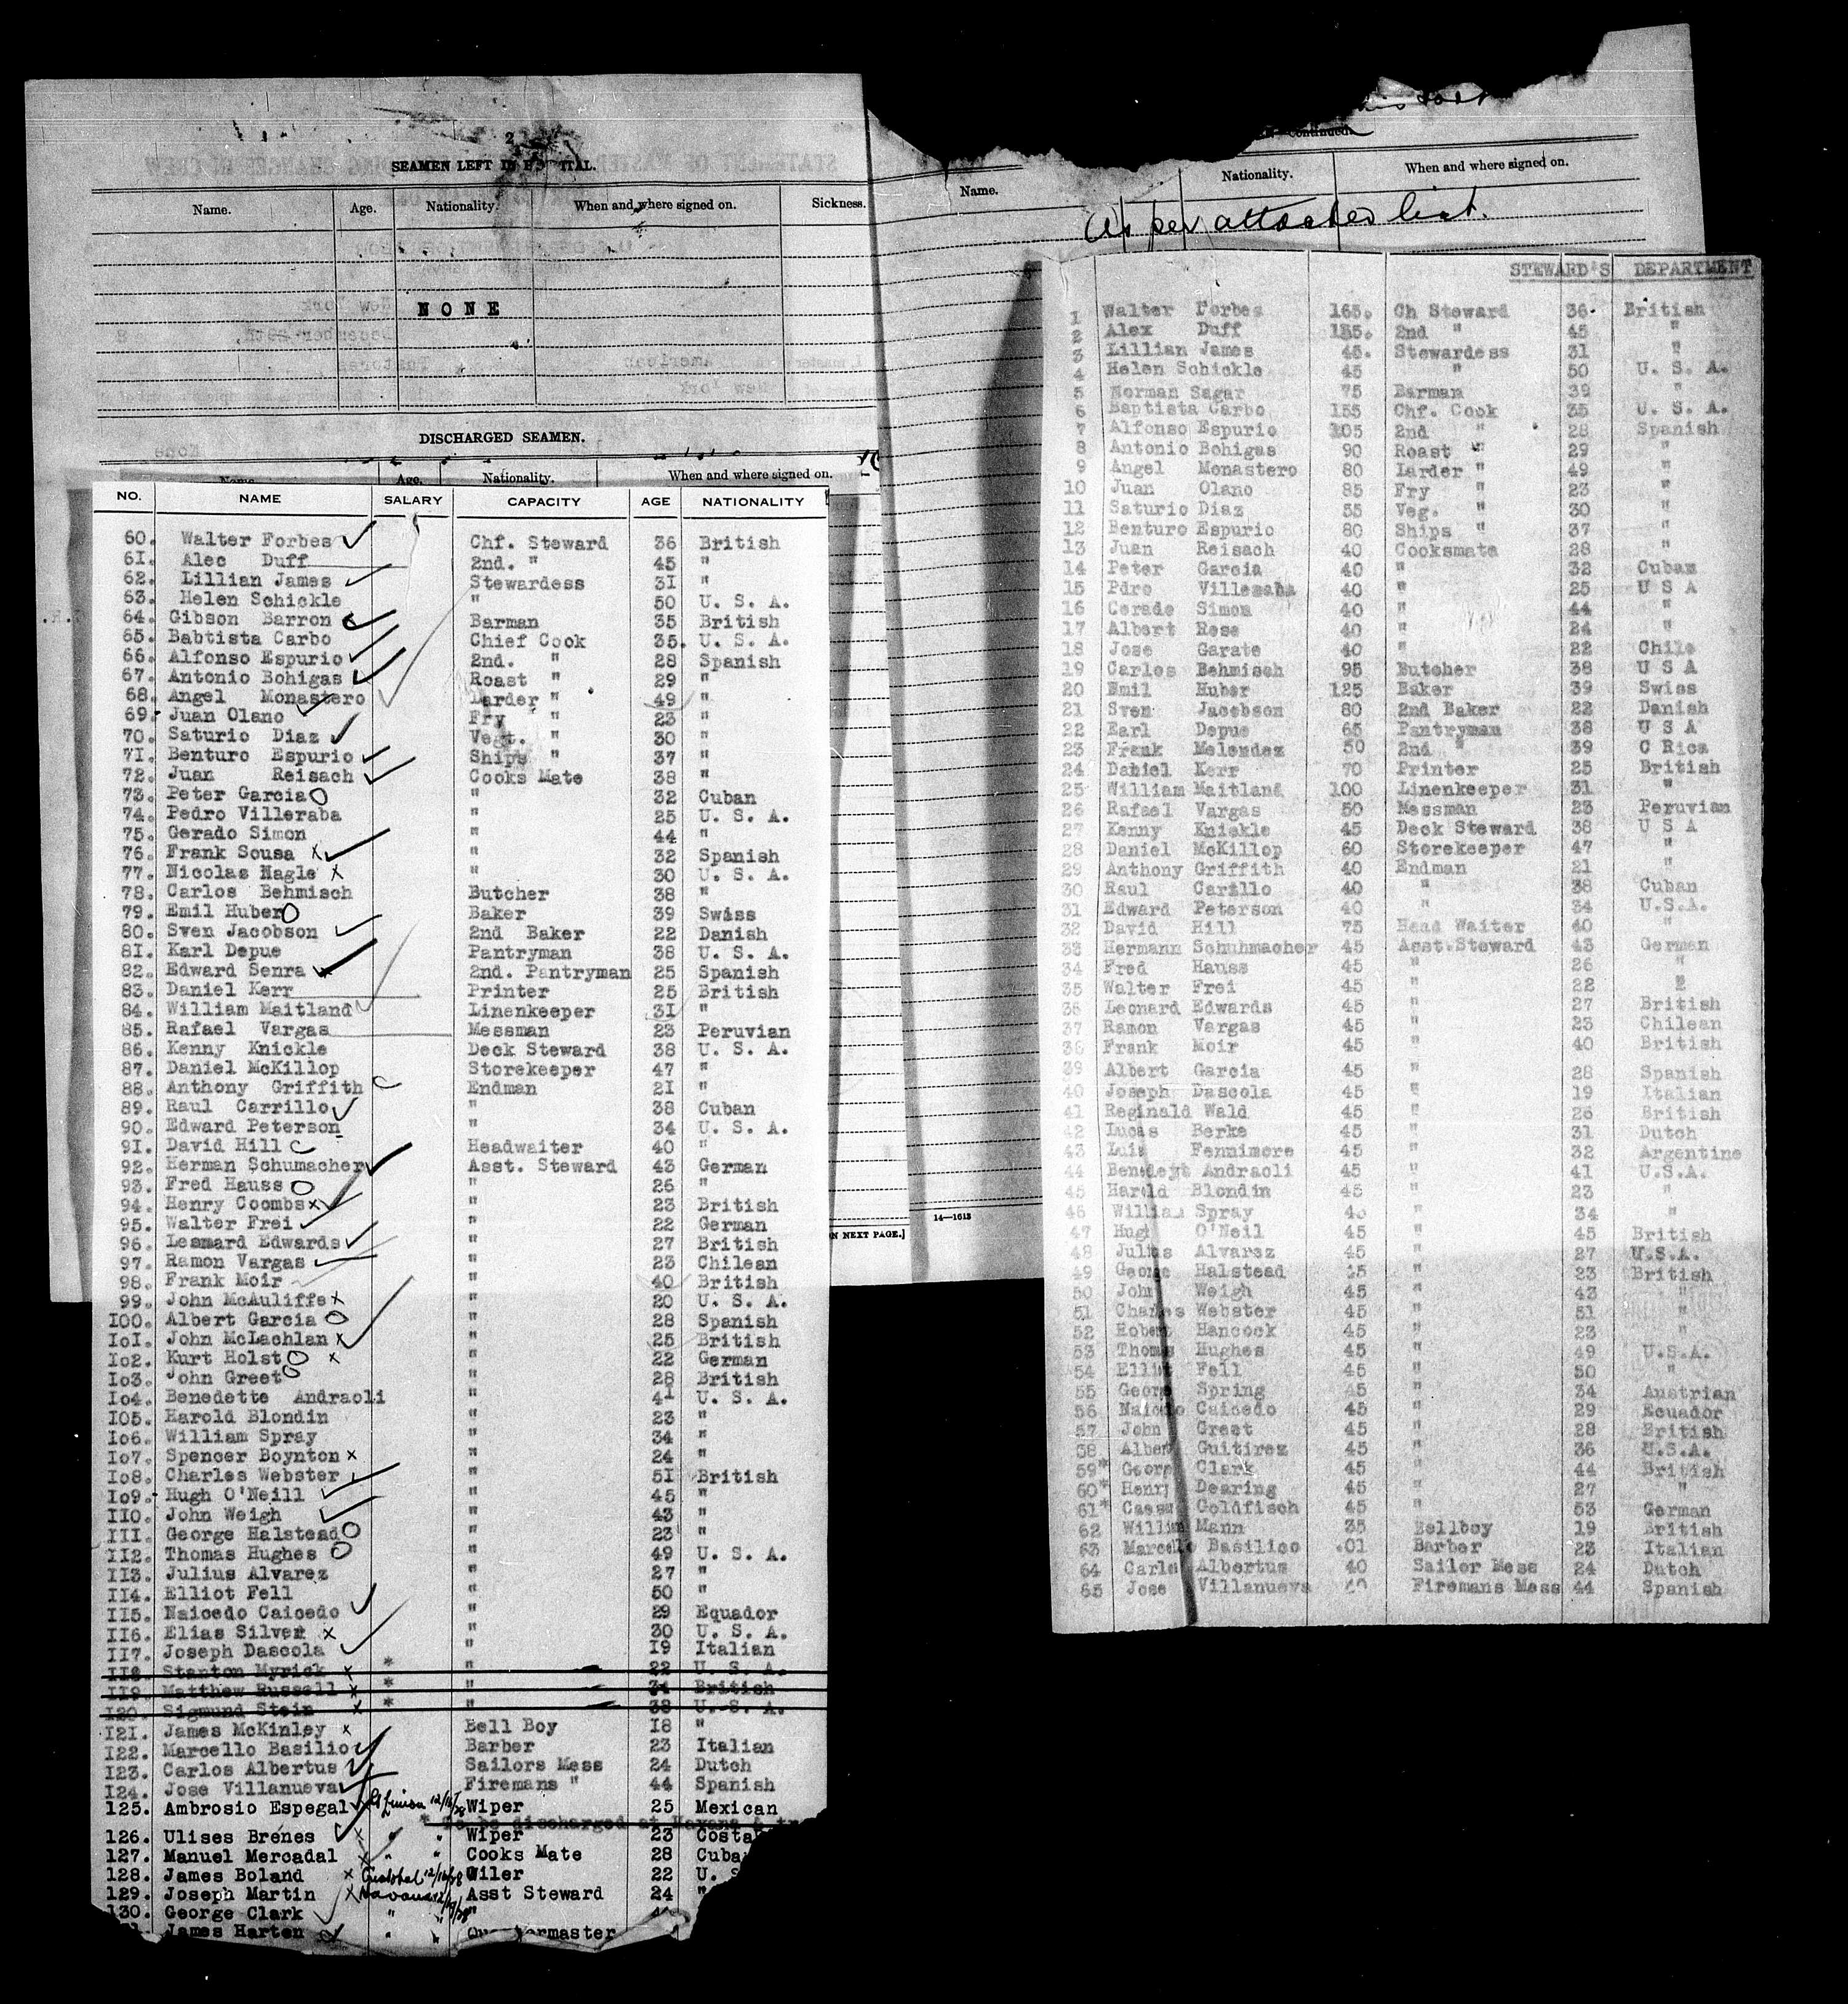 2
SEAMEN LEFT IN HOSPITAL.
Name. Age. Nationality. When and where signed on. Sickness.
NONE
DISCHARGED SEAMEN.
Name. Age. Nationality. When and where signed on.
NO. NAME SALARY CAPACITY AGE NATIONALITY
60. Walter Forbes Chf. Steward 36 British
61. Alec Duff 2nd. " 45 "
62. Lillian James Stewardess 31 "
63. Helen Schickle " 50 U. S. A.
64. Gibson Barron Barman 35 British
65. Babtista Carbo Chief Cook 35. U. S. A.
66. Alfonso Espurio 2nd. " 28 Spanish
67. Antonio Bohigas Roast " 29 "
68. Angel Monastero Larder " 49 "
69. Juan Olano Fry " 23 "
70. Saturio Diaz Vegt. " 30 "
71. Benturo Espurio Ships " 37 "
72. Juan Reisach Cooks Mate 38 "
73. Peter Garcia " 32 Cuban
74. Pedro Villeraba " 25 U. S. A.
75. Gerado Simon " 44 "
76. Frank Sousa x " 32 Spanish
77. Nicolas Nagle x " 30 U. S. A.
78. Carlos Behmisch Butcher 38 "
79. Emil Huber Baker 39 Swiss
80. Sven Jacobson 2nd Baker 22 Danish
81. Karl Depue Pantryman 38 U. S. A.
82. Edward Senra x 2nd. Pantryman 25 Spanish
83. Daniel Kerr Printer 25 British
84. William Maitland Linenkeeper 31 "
85. Rafael Vargas Messman 23 Peruvian
86. Kenny Knickle Deck Steward 38 U. S. A.
87. Daniel McKillop Storekeeper 47 "
88. Anthony Griffith Endman 21 "
89. Raul Carrillo " 38 Cuban
90. Edward Peterson " 34 U. S. A.
91. David Hill Headwaiter 40 "
92. Herman Schumacher Asst. Steward 43 German
93. Fred Hauss " 26 "
94. Henry Coombs x " 23 British
95. Walter Frei " 22 German
96. Leamard Edwards " 27 British
97. Ramon Vargas " 23 Chilean
98. Frank Moir " 40 British
99. John McAuliffe x " 20 U. S. A.
I00. Albert Garcia " 28 Spanish
IoI. John McLachlan x " 25 British
Io2. Kurt Holst x " 22 German
Io3. John Greet " 28 British
Io4. Benedette Andraoli " 41 U. S. A.
I05. Harold Blondin " 23 "
Io6. William Spray " 34 "
Io7. Spencer Boynton x " 24 "
Io8. Charles Webster " 51 British
Io9. Hugh O'Neill " 45 "
II0. John Weigh " 43 "
III. George Halstead " 23 "
II2. Thomas Hughes " 49 U. S. A.
II3. Julius Alvarez " 27 "
II4. Elliot Fell " 50 "
II5. Naicedo Caicedo " 29 Equador
II6. Elias Silver x " 30 U. S. A.
II7. Joseph Dascola " I9 Italian
II8. Stanton Myrick x * " 22 U. S. A.
II9. Matthew Russell x * " 31 British
I20. Sigmund Stein x * " 38 U. S. A.
I21. James McKinley x Bell Boy I8 "
I22. Marcello Basilio Barber 23 Italian
I23. Carlos Albertus Sailors Mess 24 Dutch
I24. Jose Villanueva Firemans " 44 Spanish
125. Ambrosio Espegal x Pt Limon 12/14/28 Wiper 25 Mexican
* To be discharged at Havana
126. Ulises Brenes x " " Wiper 23 Costa
127. Manuel Mercadal x " " Cooks Mate 28 Cuba
128. James Boland x Cristobal 12/16/28 Wiler 22 U. S
129. Joseph Martin x Havana 12/19/28 Asst Steward 24 "
130. George Clark " " "
James Harten " " Quartermaster
[ON NEXT PAGE.]
Continued.
Name. Nationality. When and where signed on.
As per attached list.
14—1613
STEWARD'S DEPARTMENT
1 Walter Forbes 165. Ch Steward 36. British
2 Alex Duff 135. 2nd " 45 "
3 Lillian James 45. Stewardess 31 "
4 Helen Schickle 45 " 50 U. S. A.
5 Norman Sagar 75 Barman 39 "
6 Baptista Carbo 155 Chf. Cook 35 U. S. A.
7 Alfonso Espurio 105 2nd " 28 Spanish
8 Antonio Bohigas 90 Roast " 29 "
9 Angel Monastero 80 Larder " 49 "
10 Juan Olano 85 Fry " 23 "
11 Saturio Diaz 55 Veg. " 30 "
12 Benturo Espurio 80 Ships " 37 "
13 Juan Reisach 40 Cooksmate 28 "
14 Peter Garcia 40 " 32 Cuban
15 Pdro Villemaba 40 " 25 U S A
16 Cerado Simon 40 " 44 "
17 Albert Rose 40 " 24 "
18 Jose Garate 40 " 22 Chile
19 Carlos Behmisch 95 Butcher 38 U S A
20 Emil Huber 125 Baker 39 Swiss
21 Sven Jacobson 80 2nd Baker 22 Danish
22 Earl Depue 65 Pantryman 38 U S A
23 Frank Melendez 50 2nd " 39 C Rica
24 Daniel Kerr 70 Printer 25 British
25 William Maitland 100 Linenkeeper 31 "
26 Rafael Vargas 50 Messman 23 Peruvian
27 Kenny Knickle 45 Deck Steward 38 U S A
28 Daniel McKillop 60 Storekeeper 47 "
29 Anthony Griffith 40 Endman 21 "
30 Raul Carillo 40 " 38 Cuban
31 Edward Peterson 40 " 34 U.S.A.
32 David Hill 75 Head Waiter 40 "
33 Hermann Schuhmacher 45 Asst.Steward 43 German
34 Fred Hauss 45 " 26 "
35 Walter Frei 45 " 22 "
36 Leonard Edwards 45 " 27 British
37 Ramon Vargas 45 " 23 Chilean
38 Frank Moir 45 " 40 British
39 Albert Garcia 45 " 28 Spanish
40 Joseph Dascola 45 " 19 Italian
41 Reginald Wald 45 " 26 British
42 Lucas Berke 45 " 31 Dutch
43 Luis Fennimore 45 " 32 Argentine
44 Benedeyt Andraoli 45 " 41 U.S.A.
45 Harold Blondin 45 " 23 "
46 William Spray 45 " 34 "
47 Hugh O'Neil 45 " 45 British
48 Julius Alvarez 45 " 27 U.S.A.
49 George Halstead 45 " 23 British
50 John Weigh 45 " 43 "
51 Charles Webster 45 " 51 "
52 Robert Hancock 45 " 23 "
53 Thomas Hughes 45 " 49 U.S.A.
54 Elliot Fell 45 " 50 "
55 Georg Spring 45 " 34 Austrian
56 Naicedo Caicedo 45 " 29 Ecuador
57 John Greet 45 " 28 British
58 Albert Guitirez 45 " 36 U.S.A.
59* Georg Clark 45 " 44 British
60* Henry Dearing 45 " 27 "
61* Goldfisch 45 " 53 German
62 William Mann 35 Bellboy 19 British
63 Marcello Basilico .01 Barber 23 Italian
64 Carlo Albertus 40 Sailor Mess 24 Dutch
65 Jose Villanueva 40 Firemans Mess 44 Spanish